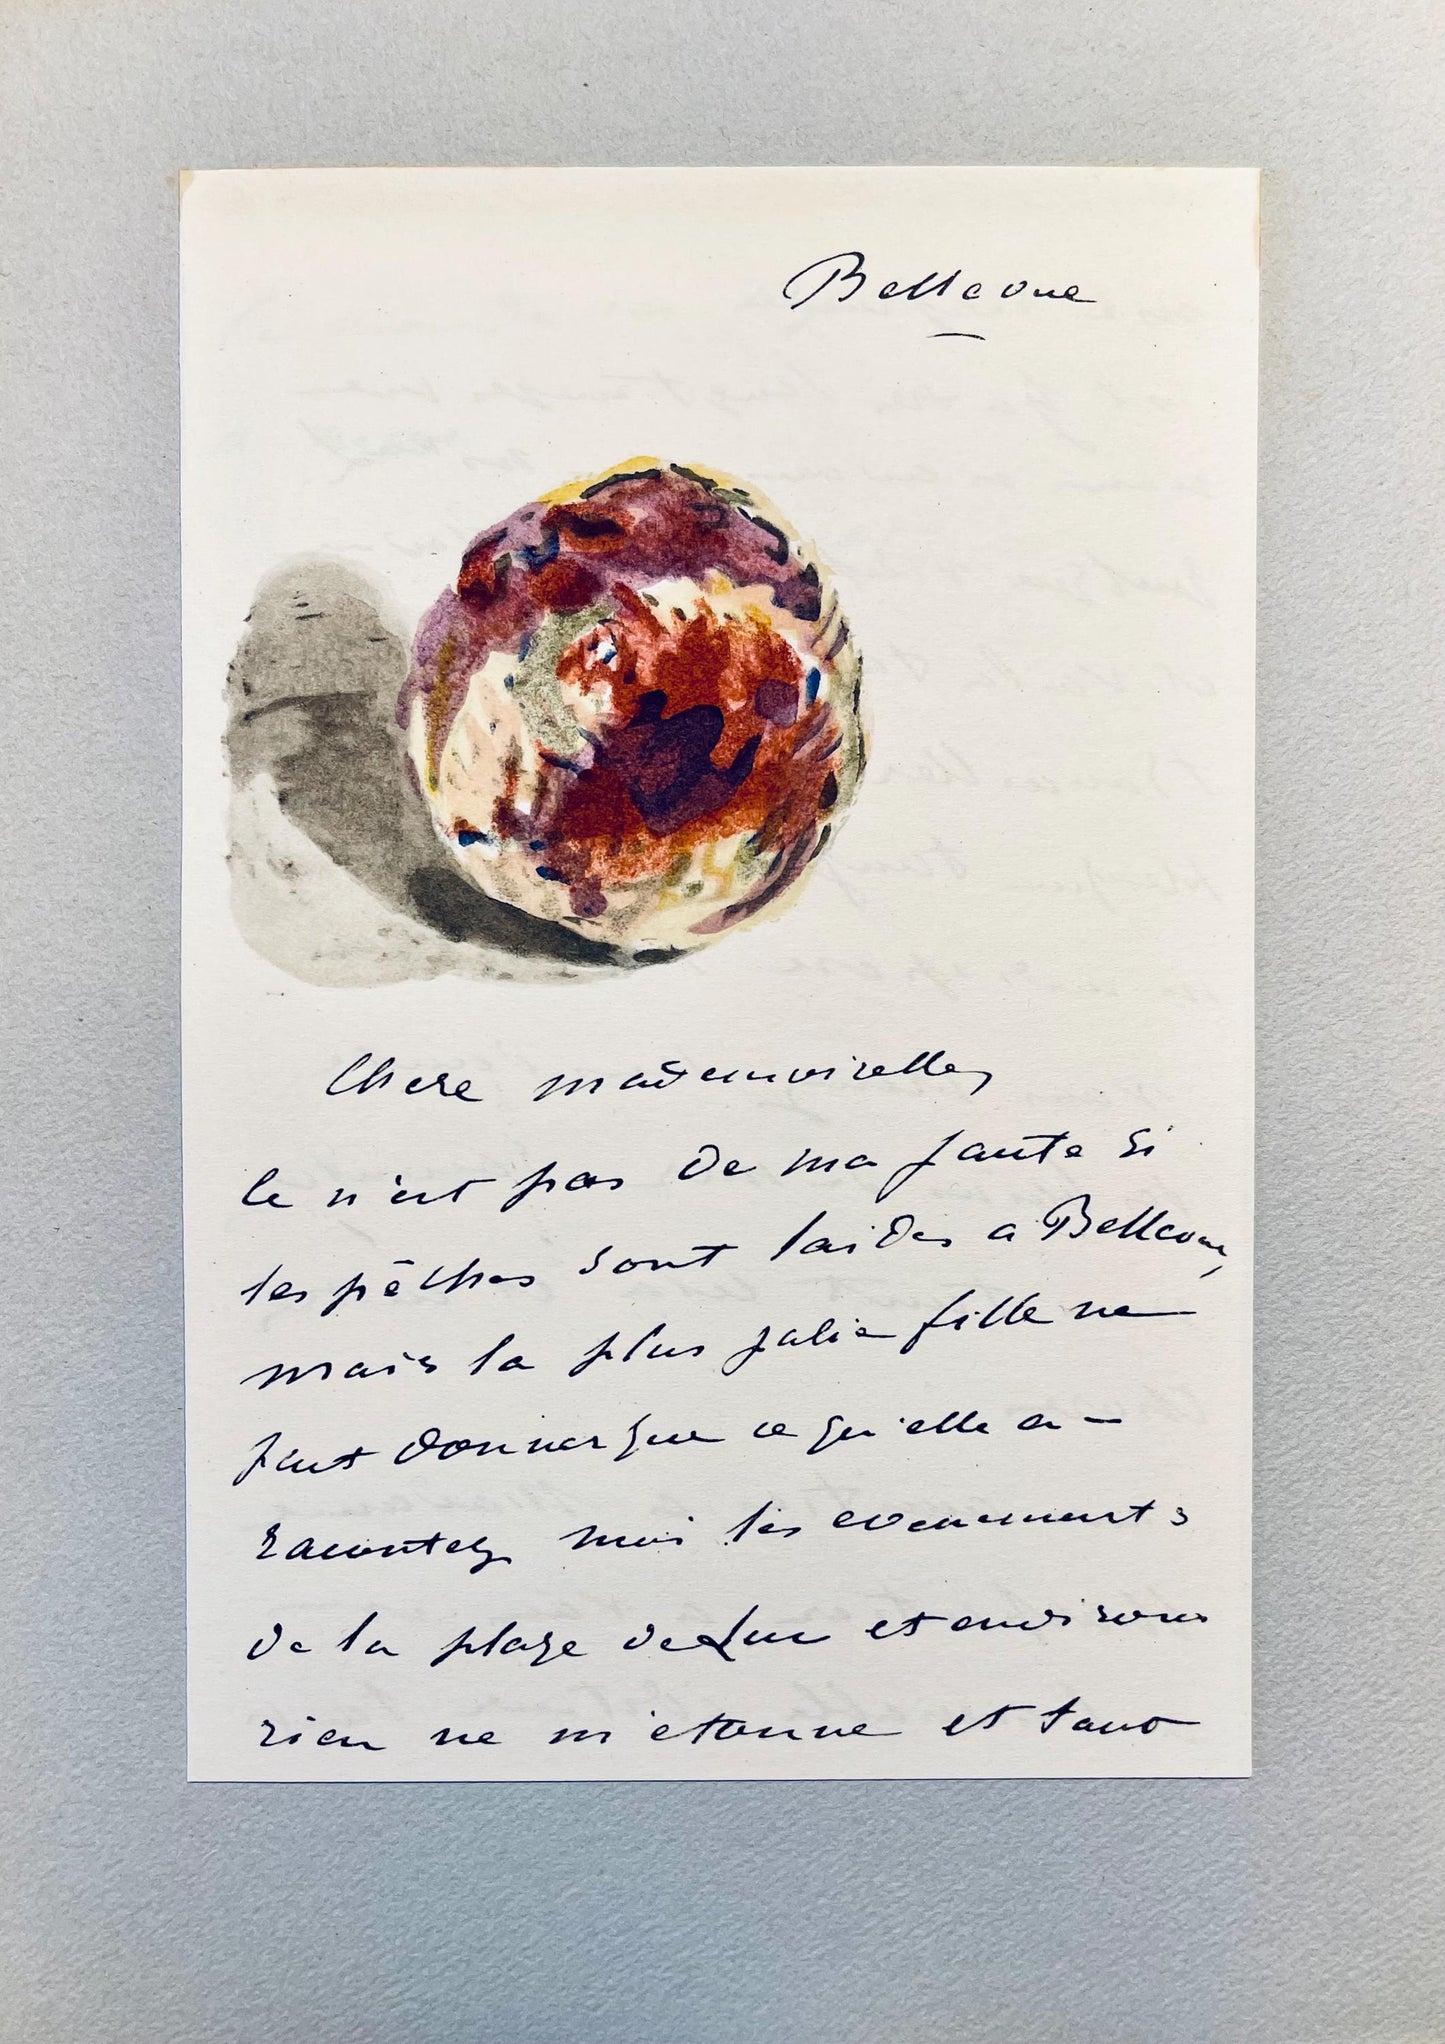 Bellevue
Chere mademoiselle,
Ce n'est pas de ma faute si
les pêches sont laides a Bellevue,
mais la plus jolie fille ne
peut donner que ce qu'elle a —
racontez moi les evenements
de la plage de Luc et environs
rien ne m'etonne et tout